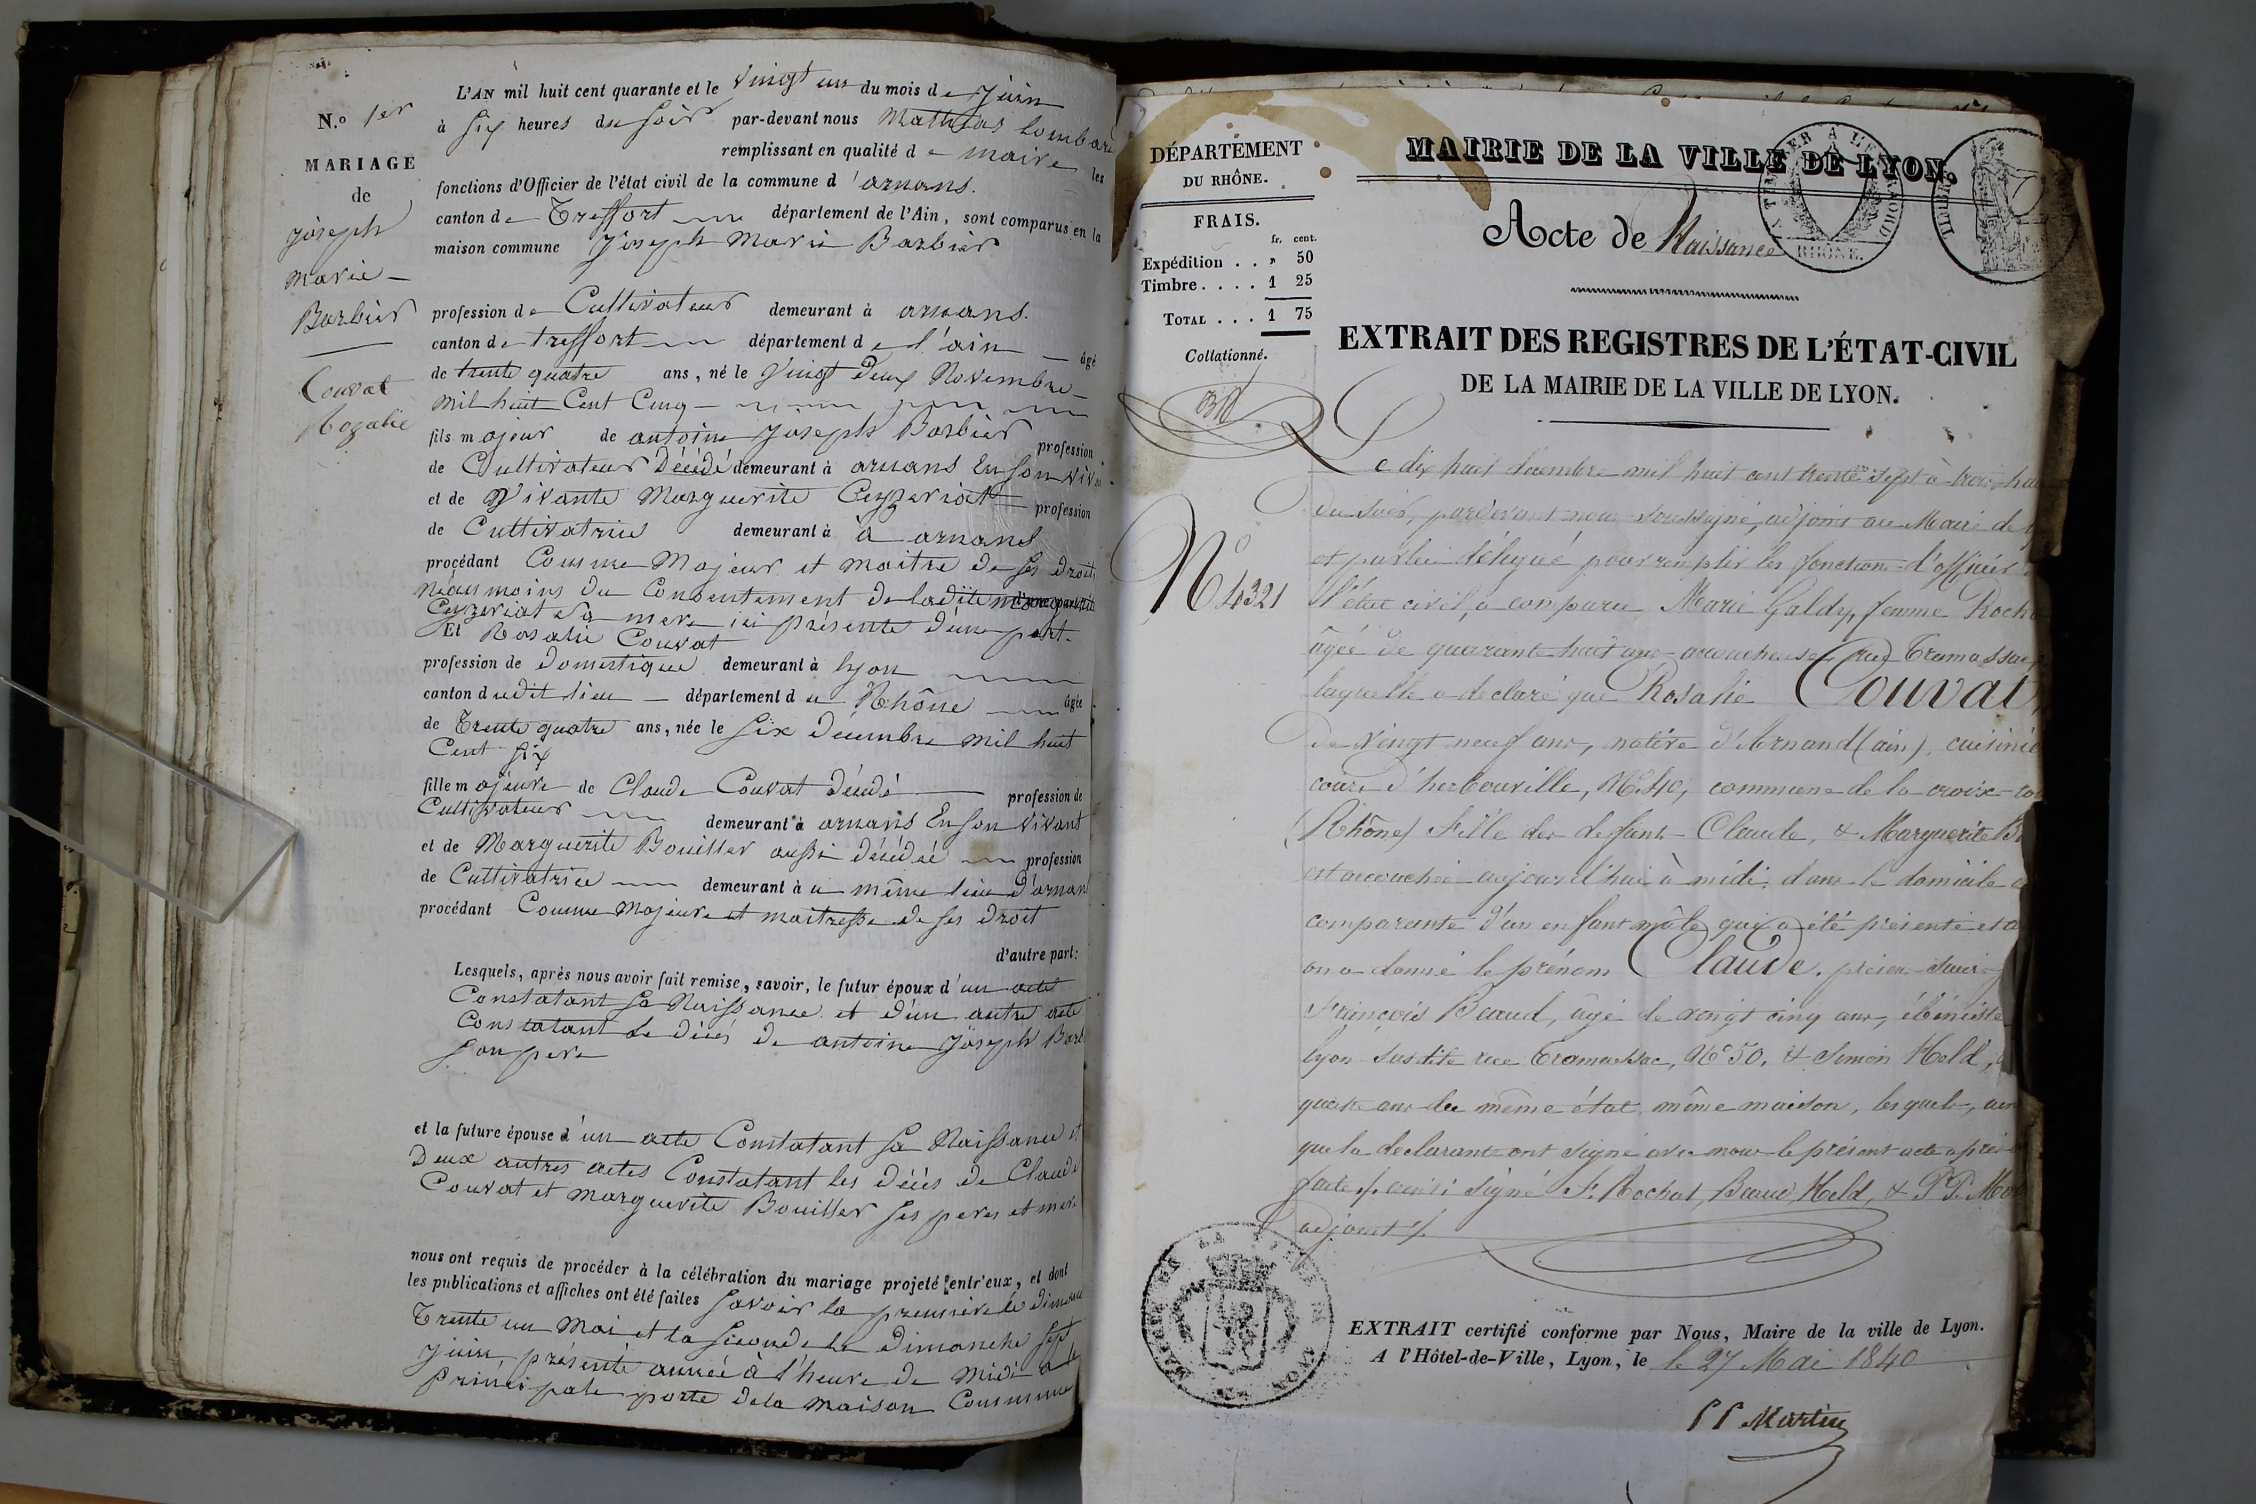 N.º 1er
MARIAGE
de
joseph
marie
Barbier
Couvat
Rozalie
L'AN mil huit cent quarante et le vingt un du mois de juin
à six heures du soir par-devant nous Mathias Lombard
remplissant en qualité de maire les
fonctions d'Officier de l'état civil de la commune d'arnans.
canton de Treffort département de l'Ain, sont comparus en la
maison commune Joseph Marie Barbier
profession de Cultivateur demeurant à arnans.
canton de treffort département de l'ain âgé
de trente quatre ans, né le vingt deux Novembre
mil huit Cent Cinq
fils majeur de antoine Joseph Barbier profession
de Cultivateur Décédé demeurant à arnans En son viva
et de Vivante Marguerite Ceyzeriat profession
de Cultivatrice demeurant à à arnans
procédant Comme Majeur et maitre de ses droits
néanmoins du Consentement de ladite
Ceyzeriat sa mere ici présente d'une part.
Et Rosalie Couvat
profession de domestique demeurant à lyon
canton dudit lieu département du Rhône âgée
de Trente quatre ans, née le six décembre mil huit
Cent six
fille majeure de Claude Couvat décédé profession de
Cultivateur demeurant à arnans En son vivant
et de Marguerite Bouiller aussi décédée profession
de Cultivatrice demeurant à u même lieu d'arnans
procédant Comme Majeure et maitresse de ses droit
d'autre part:
Lesquels, après nous avoir fait remise, savoir, le futur époux d'un acte
Constatant sa Naissance et d'un autre acte
Constatant le décés de antoine Joseph Barb
son pere
et la future épouse d'un acte Constatant sa Naissance et
Deux autres actes Constatant les décés de Claude
Couvat et marguerite Bouiller ses peres et mere
nous ont requis de procéder à la célébration du mariage projeté entr'eux, et dont
les publications et affiches ont été faites savoir la premiere le dimanche
Trente un Mai et la seconde le Dimanche sept
juin présente année à l'heure de midi à la
principale porte de la maison Commune
DÉPARTEMENT
DU RHÔNE.
FRAIS.
fr. cent.
Expédition . . » 50
Timbre . . . . 1 25
TOTAL . . . 1 75
Collationné.
N° 4321
MAIRIE DE LA VILLE DE LYON.
Acte de Naissance
RHÔNE.
EXTRAIT DES REGISTRES DE L'ÉTAT-CIVIL
DE LA MAIRIE DE LA VILLE DE LYON.
Le dix huit décembre mil huit cent trente sept à trois heu
du soir, pardevant nous soussigné, adjoint au Maire de
et par lui délégué pour remplir les fonctions d'officier
d'état civil, a comparu Marie Galdy, femme Rocha
âgée de quarante huit ans accoucheuse rue Tramassac
laquelle a déclaré que Rosalie Couvat,
de vingt neuf ans, native d'Arnand (ain), cuisiniè
cours d'herbouville, N° 40, commune de la croix-ro
(Rhône) Fille des defunts Claude, & Marguerite B
est accouchée aujourd'hui à midi, dans le domicile
comparante d'un enfant mâle qui a été présenté et a
on a donné le prénom Claude.
François Beaud, âgé de vingt cinq ans, ébéniste
lyon susdite rue Tramassac, N° 50, & Simon Held,
quatre ans du même état même maison, lesquels, ain
que la déclarante ont signé avec nous le présent acte après
faite /. ainsi signé F. Rochat, Beaud, Held, & P.P. M
adjoint /.
EXTRAIT certifié conforme par Nous, Maire de la ville de Lyon.
A l'Hôtel-de-Ville, Lyon, le le 27 Mai 1840
P P Martin